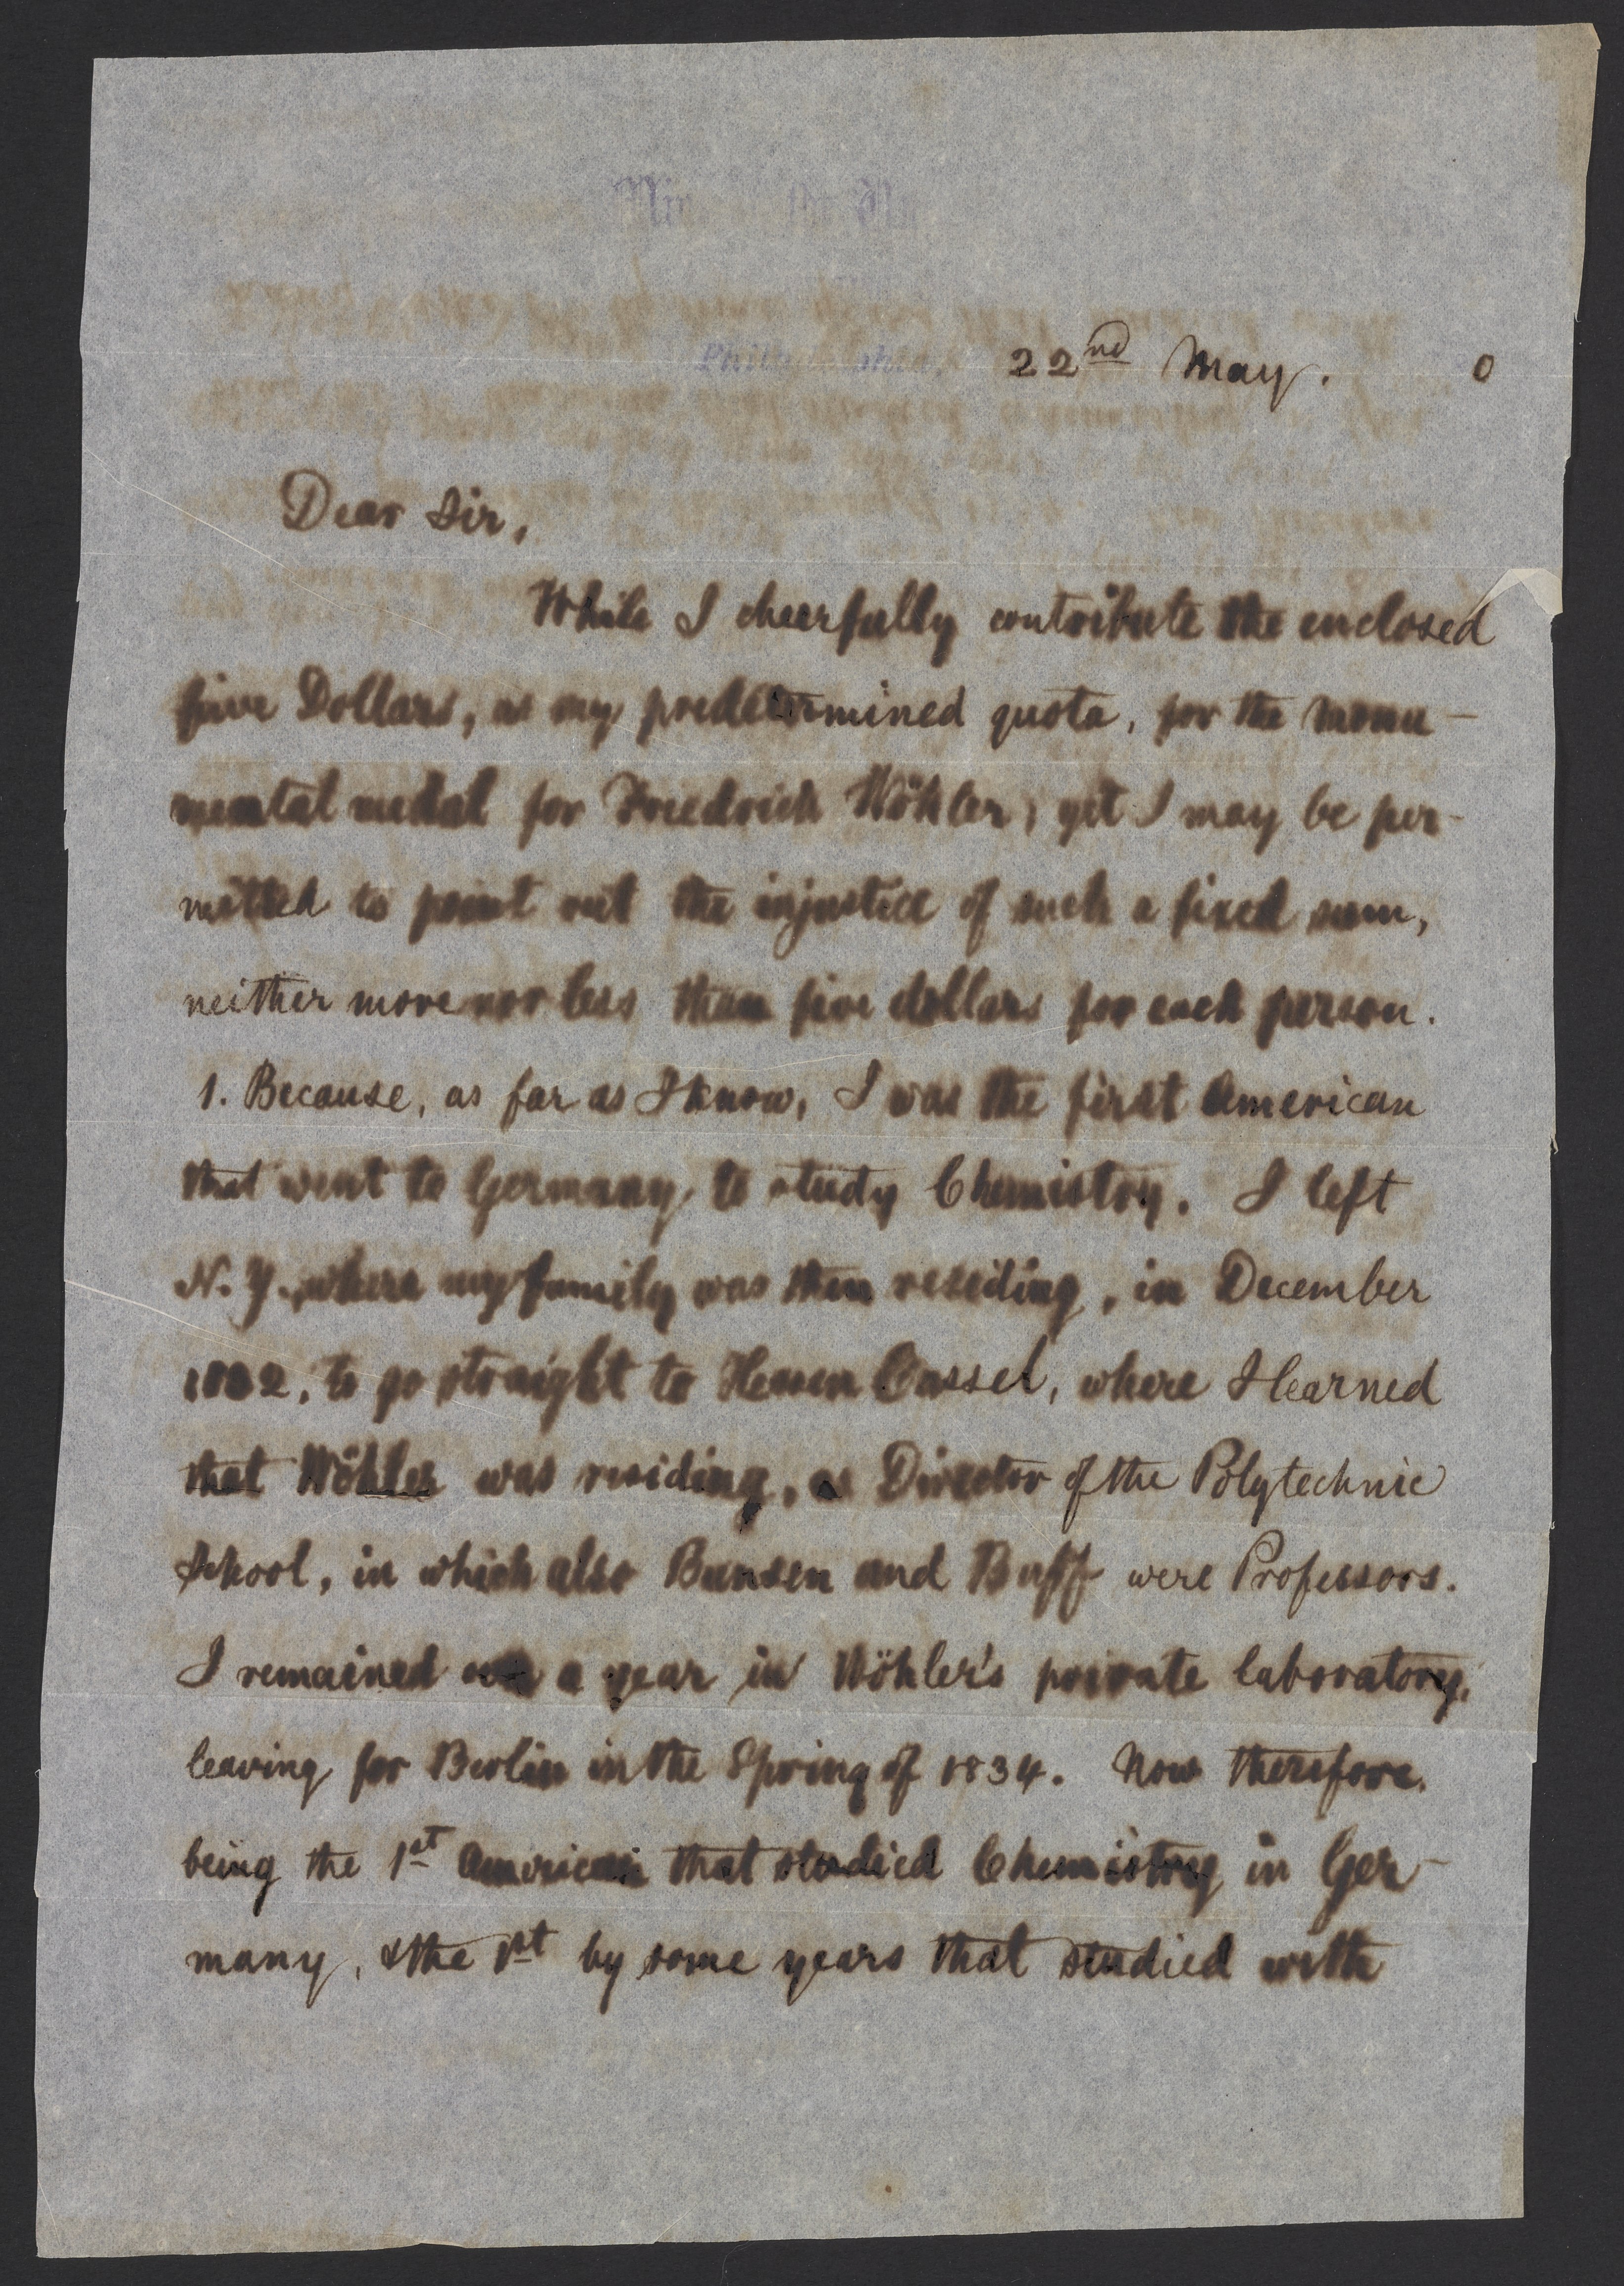 Philadelphia, 22nd May. 0
Dear Sir,
While I cheerfully contribute the enclosed
five Dollars, as my predetermined quota, for the monu-
mental medal for Friedrich Wöhler; yet I may be per-
mitted to point out the injustice of such a fixed sum,
neither more nor less than five dollars for each person.
1. Because, as far as I know, I was the first American
that went to Germany to study Chemistry. I left
N. Y., where my family was then residing, in December
1832, to go straight to Hessen Cassel, where I learned
that Wöhler was residing, as Director of the Polytechnic
School, in which also Bunsen and Buff were Professors.
I remained a year in Wöhler's private laboratory,
leaving for Berlin in the Spring of 1834. Now therefore,
being the 1st American that studied Chemistry in Ger-
many, & the 1st by some years that studied with